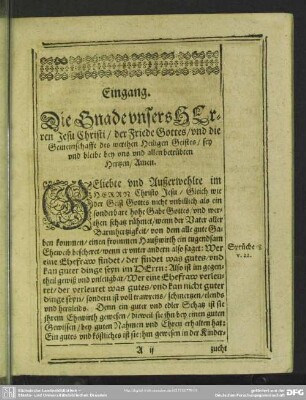 Eingang.
Die Gnade vnsers HEr-
ren Jesu Christi / der Friede Gottes / vnd die
Gemeinschafft des werthen Heiligen Geistes / sey
vnd bleibe bey vns vnd allen betrübten
Hertzen / Amen.
GEliebte vnd Außerwehlte im
HERRN Christo Jesu / Gleich wie
der Geist Gottes nicht vnbillich als ein
sonderbare hohe Gabe Gottes / vnd wer-
then schatz rühmet / wenn der Vater aller
Barmhertzigkeit / von dem alle gute Ga-
ben kommen / einen frommen Haußwirth ein tugendsam
Eheweib bescheret / wenn er vnter andern also saget: Wer
eine Ehefraw findet / der findet was gutes / vnd
kan guter dinge seyn im HErrn: Also ist im gegen-
theil gewiß vnd vnleugbar / Wer eine Ehefraw verleu-
ret / der verleuret was gutes / vnd kan nicht guter
dinge seyn / sondern ist voll trawrens / schmertzen / elends
vnd hertzleids. Denn ein guter vnd edler Schatz ist sie
jhrem Ehewirth gewesen / dieweil sie jhn bey einem guten
Gewissen / bey guten Nahmen vnd Ehren erhalten hat:
Ein gutes vnd köstliches ist sie jhm gewesen in der Kinder-
Sprüche
v. 22.
A ij
zucht